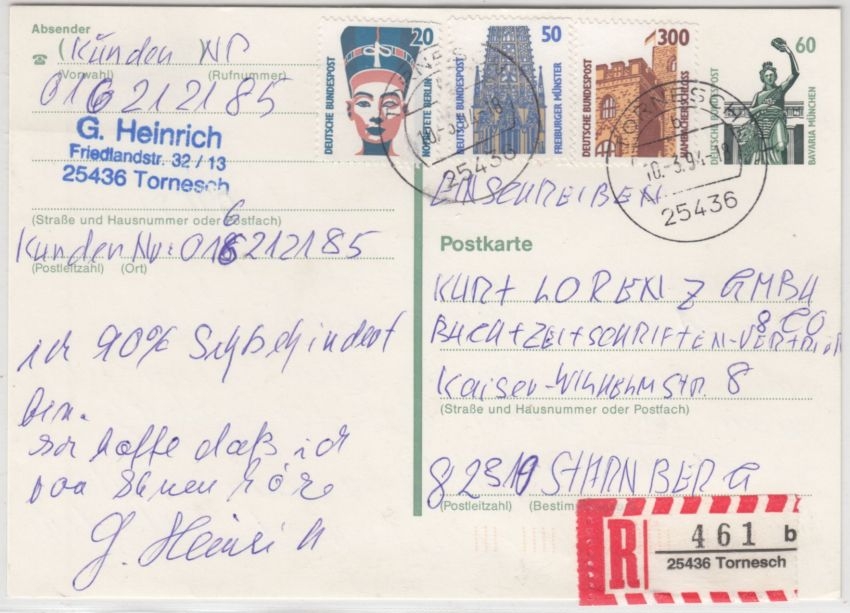 Absender
☎ (Kunden NR
(Vorwahl) )(Rufnummer)
016212185
G. Heinrich
Friedlandstr. 32 / 13
25436 Tornesch
(Straße und Hausnummer oder Postfach)
6
Kunden Nr: 016212185
(Postleitzahl) (Ort)
ich 90%
bin.
hoffe daß ich
höre
G. Heinrich
20
DEUTSCHE BUNDESPOST
NOFRETETE BERLIN
50
DEUTSCHE BUNDESPOST
FREIBURGER MÜNSTER
300
DEUTSCHE BUNDESPOST
HAMBACHER SCHLOSS
60
DEUTSCHE BUNDESPOST
BAVARIA MÜNCHEN
TORNESCH
10.-3.94-18
25436
TORNESCH
10.-3.94-18
25436
EINSCHREIBEN
Postkarte
KURT LORENZ GMBH
& CO
BUCH + ZEITSCHRIFTEN-VERTRIEB
Kaiser-WILHELM STR. 8
(Straße und Hausnummer oder Postfach)
82319 STARNBERG
(Postleitzahl) (Bestim
R
461 b
25436 Tornesch